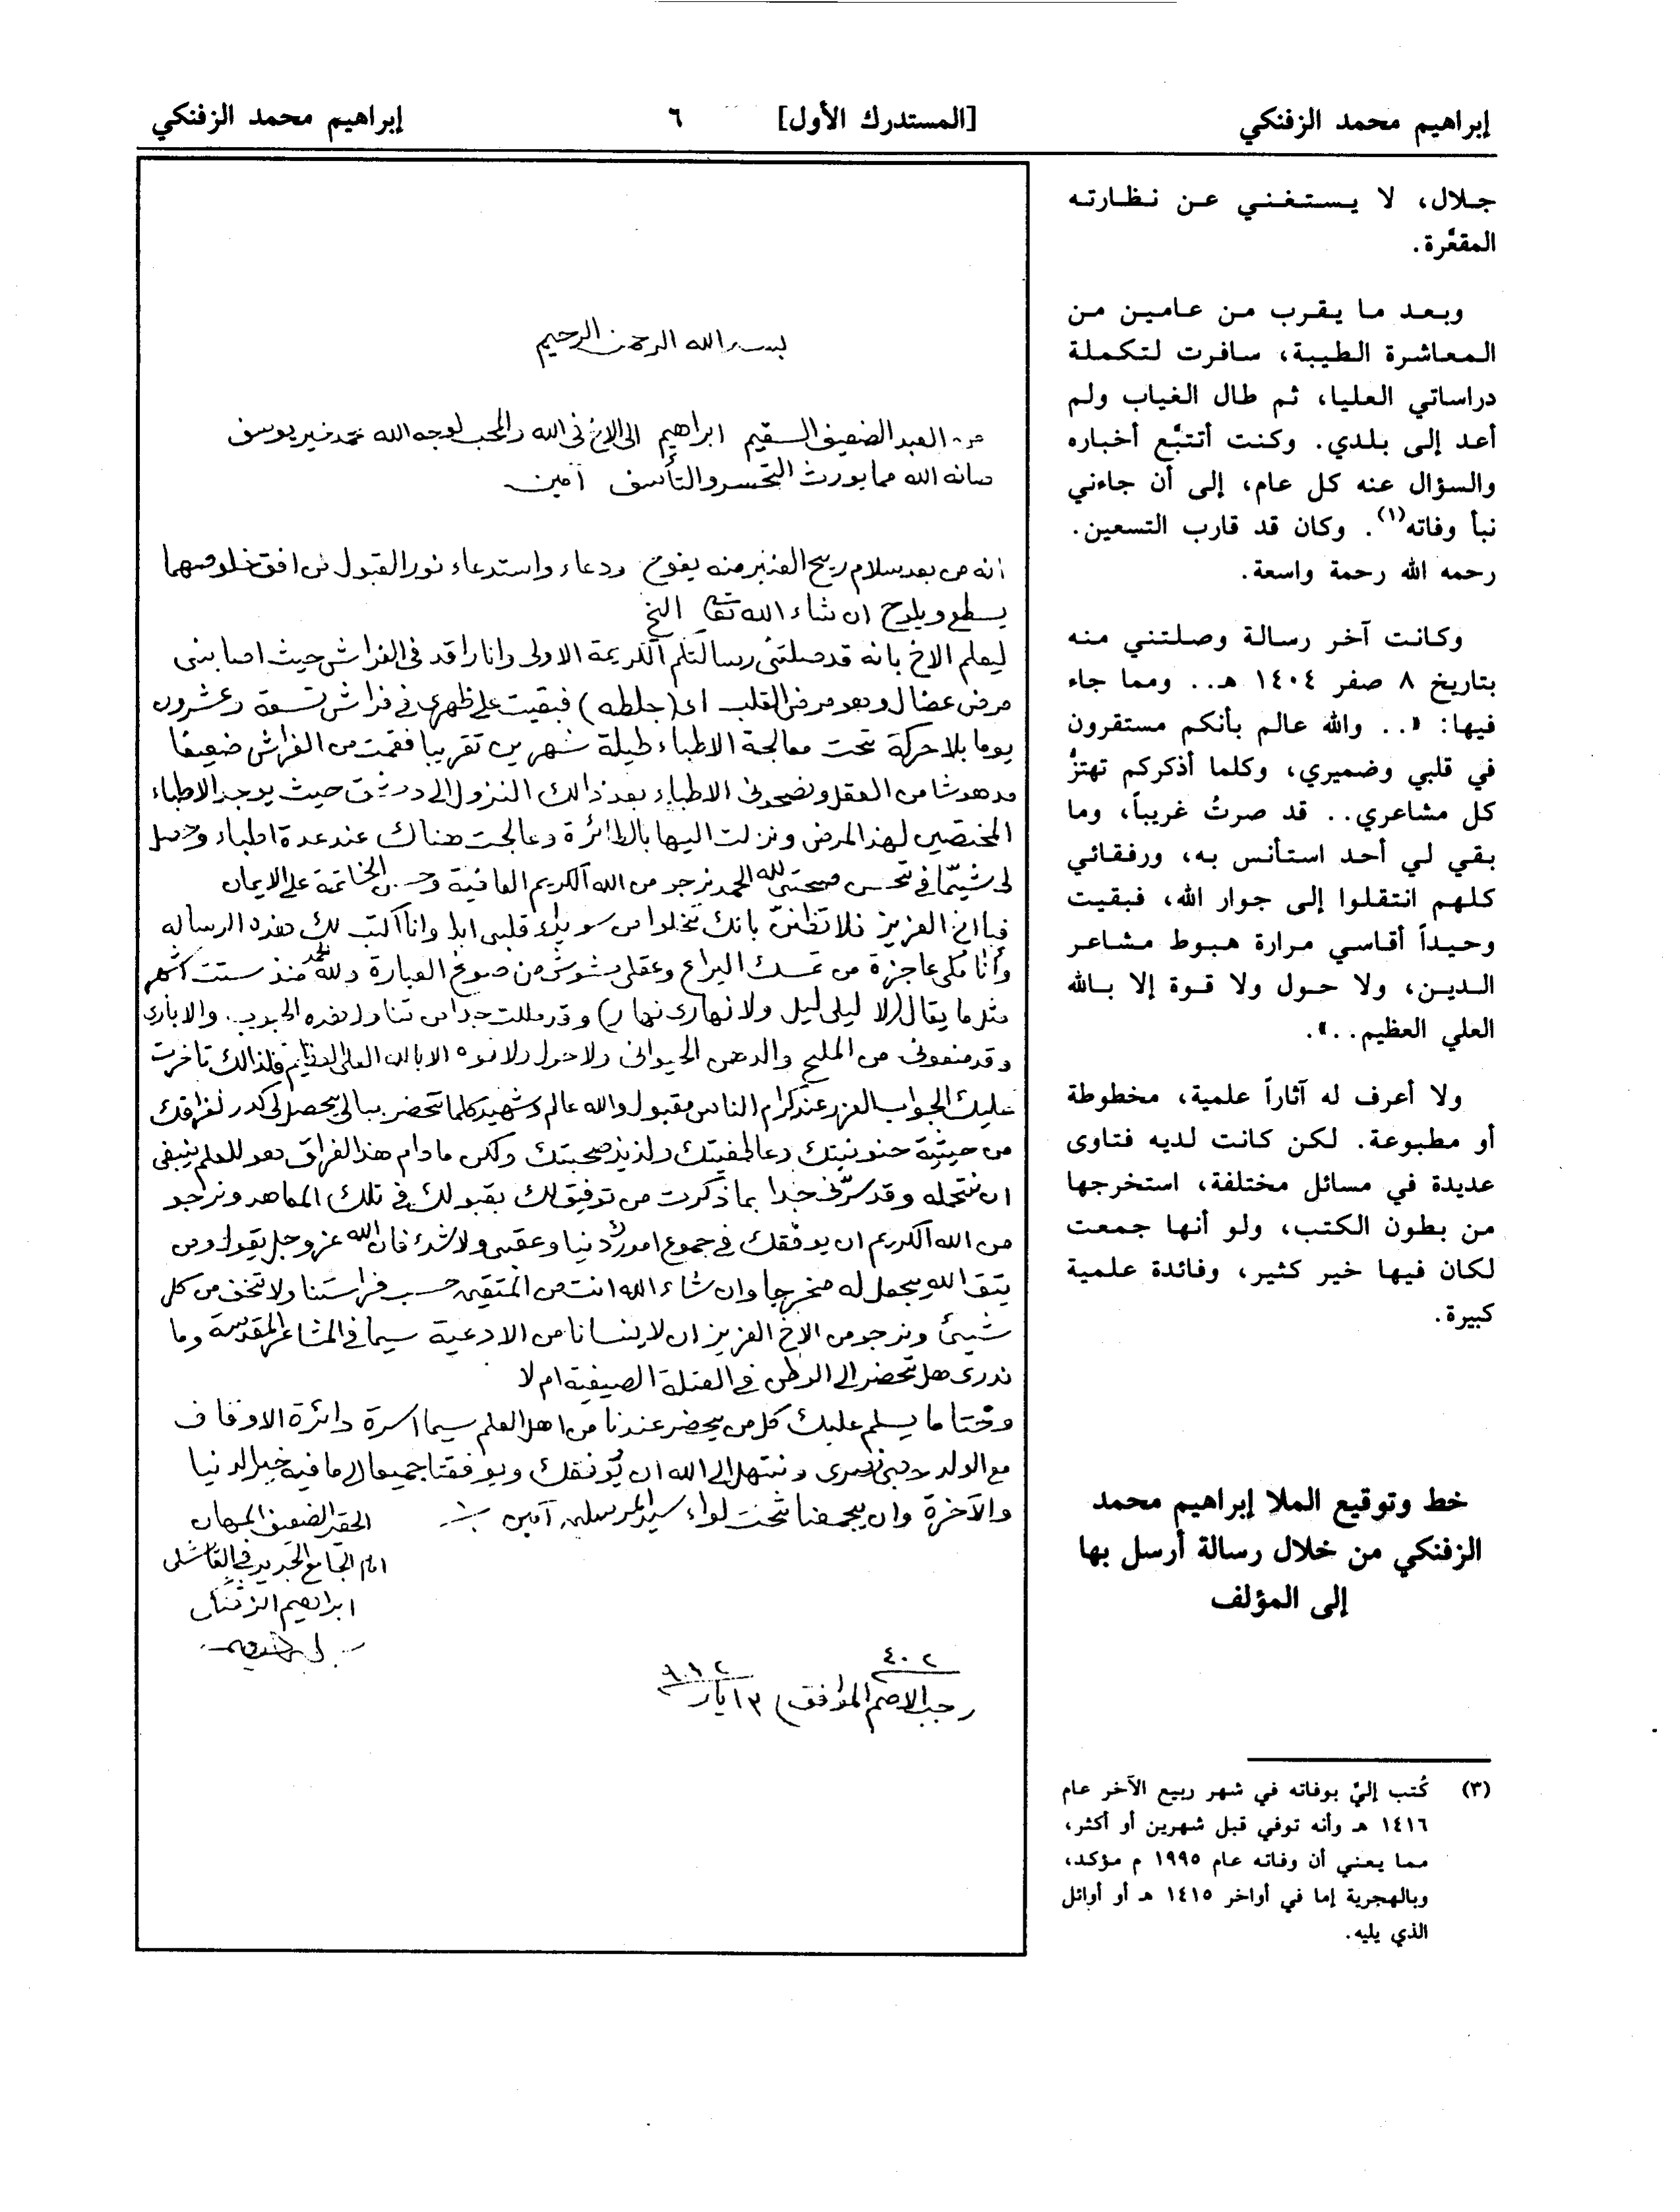 إبراهيم محمد الزفنكي [المستدرك الأول] ٦ إبراهيم محمد الزفنكي
جلال، لا يستغني عن نظارته
المقعَّرة.
وبعد ما يقرب من عامين من
المعاشرة الطيبة، سافرت لتكملة
دراساتي العليا، ثم طال الغياب ولم
أعد إلى بلدي. وكنت أتتبَّع أخباره
والسؤال عنه كل عام، إلى أن جاءني
نبأ وفاته(١). وكان قد قارب التسعين.
رحمه الله رحمة واسعة.
وكانت آخر رسالة وصلتني منه
بتاريخ ٨ صفر ١٤٠٤ هـ.. ومما جاء
فيها: «.. والله عالم بأنكم مستقرون
في قلبي وضميري، وكلما أذكركم تهتزُّ
كل مشاعري.. قد صرتُ غريباً، وما
بقي لي أحد استأنس به، ورفقائي
كلهم انتقلوا إلى جوار الله، فبقيت
وحيداً أقاسي مرارة هبوط مشاعر
الدين، ولا حول ولا قوة إلا بالله
العلي العظيم..».
ولا أعرف له آثاراً علمية، مخطوطة
أو مطبوعة. لكن كانت لديه فتاوى
عديدة في مسائل مختلفة، استخرجها
من بطون الكتب، ولو أنها جمعت
لكان فيها خير كثير، وفائدة علمية
كبيرة.
خط وتوقيع الملا إبراهيم محمد
الزفنكي من خلال رسالة أرسل بها
إلى المؤلف
(٣) كُتب إليَّ بوفاته في شهر ربيع الآخر عام
١٤١٦ هـ وأنه توفي قبل شهرين أو أكثر،
مما يعني أن وفاته عام ١٩٩٥ م مؤكد،
وبالهجرية إما في أواخر ١٤١٥ هـ أو أوائل
الذي يليه.
بسم الله الرحمن الرحيم
من العبد الضعيف السقيم ابراهيم الى الاخ في الله والمحب لوجه الله محمد خير يوسف
صانه الله مما يورث التحسر والتأسف آمين
انه من بعد سلام ريح العنبر منه يفوح ودعاء واستدعاء نور القبول من افق خلوصهما
يسطع ويلوح ان شاء الله تعالى الخ
ليعلم الاخ بانه قد وصلتني رسالتكم الكريمة الاولى وانا راقد في الفراش حيث اصابني
مرض عضال وهو مرض القلب اى (جلطه) فبقيت على ظهري في فراش تسعة وعشرون
يوما بلا حركة تحت معالجة الاطباء طيلة شهرين تقريبا فقمت من الفراش ضعيفا
مدهوشا من العقل ونصحوني الاطباء بعد ذالك النزول الى دمشق حيث يوجد الاطباء
المختصين لهذا المرض ونزلت اليها بالطائرة وعالجت هناك عند عدة اطباء وحصل
لى شيئا في تحسن صحتي لله الحمد نرجو من الله الكريم العافية وحسن الخاتمة على الايمان
فيا اخ العزيز فلا تظنن بانك تخلوا من سويداء قلبي ابدا وانا اكتب لك هذه الرساله
وأنا عاجزة من مسك اليراع وعقلي مشوش من صوغ العبارة ولله الحمد منذ ستت اشهر
مثل ما يقال (لا ليلى ليل ولا نهارى نهار) وقد مللت جدا من تناول هذه الحبوب والابارى
وقد منعونى من الملح والدهن الحيوانى ولا حول ولا قوه الا بالله العلى العظيم فلذالك تاخرت
عليك الجواب العذر عند كرام الناس مقبول والله عالم وشهيد كلما تحضر ببالى يحصل لى كدر لفراقك
من حيثية حنونيتك وعاطفيتك ولذيذ صحبتك ولكن ما دام هذا الفراق هو للعلم ينبغى
ان نتحمله وقد سرّنى جدا بما ذكرت من توفيق لك بقبولك في تلك المعاهد ونرجو
من الله الكريم ان يوفقك في جموع امورك دنيا وعقبى ولا شك فان الله عز وجل يقول ومن
يتق الله يجعل له مخرجا وان شاء الله انت من المتقين حسب فراستنا ولا تخف من كل
شيئ ونرجو من الاخ العزيز ان لا ينسانا من الادعية سيما في المشاعر المقدسة وما
ندرى هل تحضر الى الوطن في العتلة الصيفية ام لا
وختاما يسلم عليك كل من يحضر عندنا من اهل العلم سيما اسرة دائرة الاوقاف
مع الولد ونبتهل الى الله ان يوفقك ويوفقنا جميعا الى ما فيه خير الدنيا
والآخرة وان يجمعنا تحت لواء سيد المرسلين آمين
الحقير الضعيف المهان
امام الجامع الجديد في القامشلى
ابراهيم الزفنكى
٤٠٢
رجب الاصم الموافق) ١٣ ايار